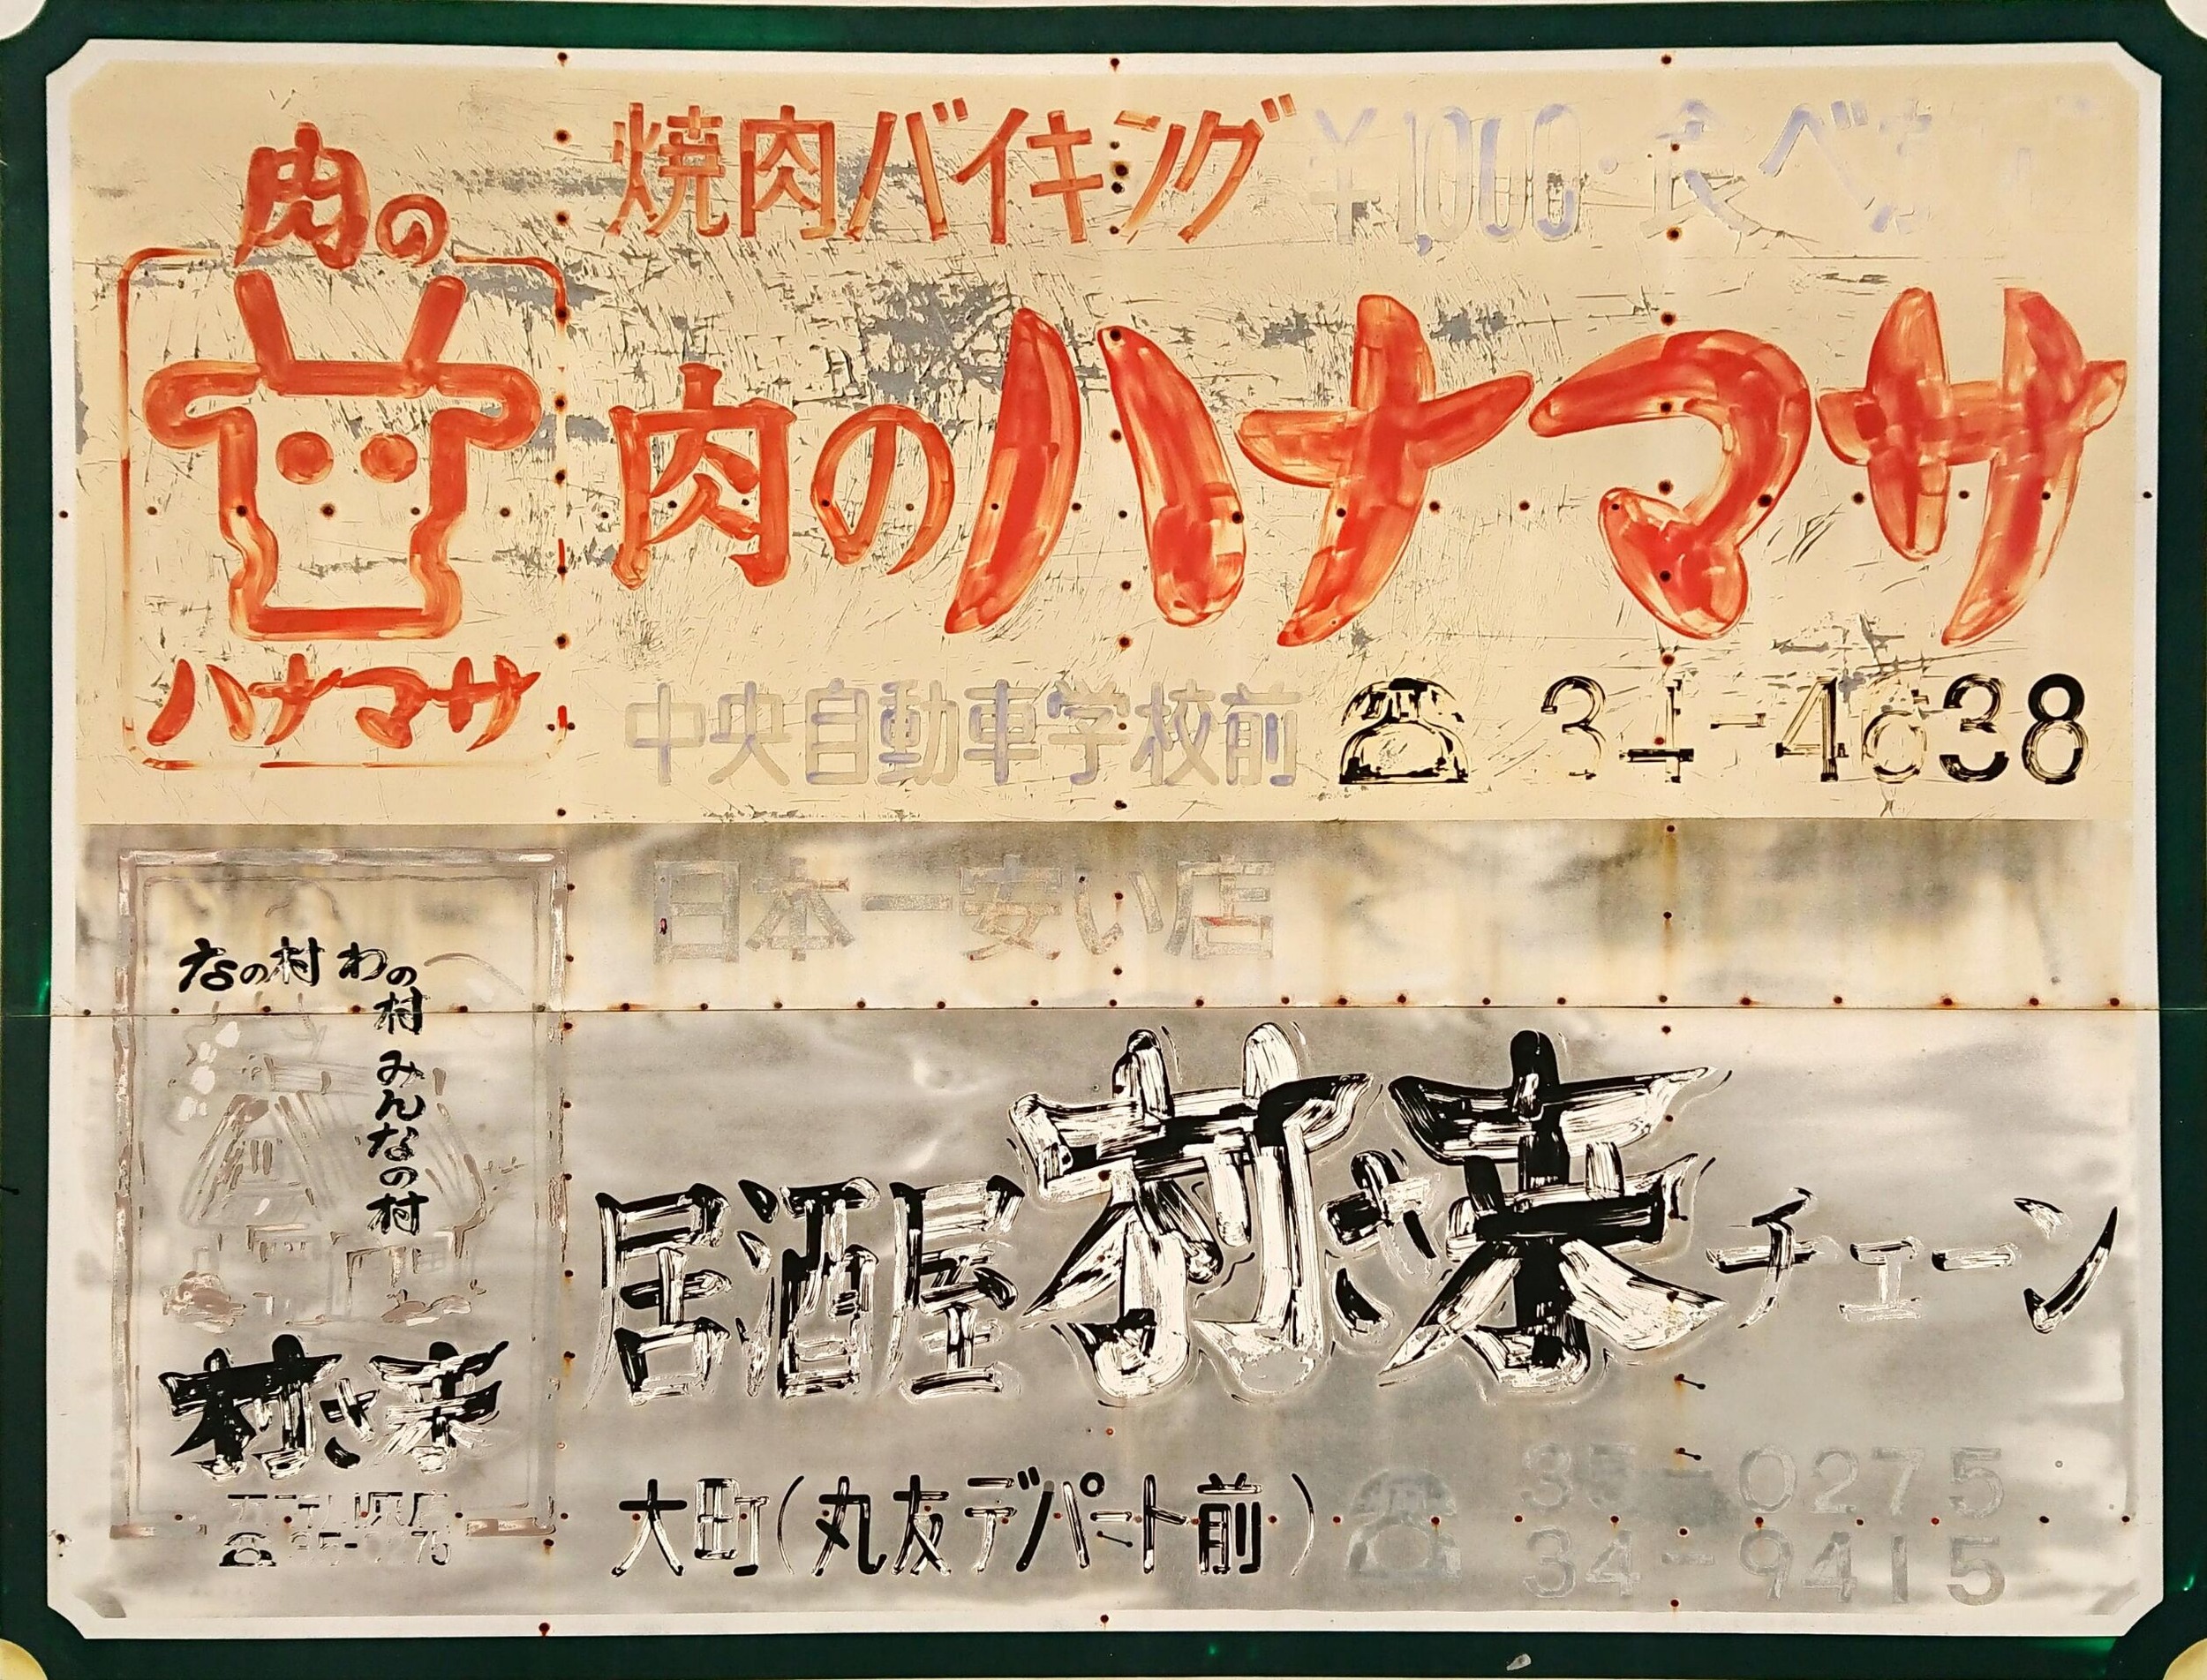 肉の
ハナマサ
焼肉バイキング ¥1,000・食べ
肉のハナマサ
中央自動車学校前 ☎ 34-4638
日本一安い店
なの村 わの村 みんなの村
村さ来
☎ 35-0275
居酒屋 村さ来 チェーン
大町(丸友デパート前) ☎ 35-0275
34-9415